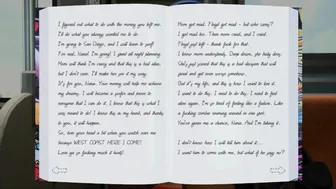 I figured out what to do with the money you left me.
I'll do what you always wanted me to do.
I'm going to San Diego, and I will learn to surf!
For real, Nana! I'm going! I grant all night planning.
Mom will think I'm crazy and that this is a bad idea,
but I don't care. I'll make her see it my way.
It's for you, Nana. Your money will help me achieve
my dreams. I will become a surfer and prove to
everyone that I can do it. I know that this is what I
was meant to do! I know this in my heart, and thanks
to you, it will happen.
So, turn your head a bit when you watch over me
because WEST COAST HERE I COME!
Love you so fucking much it hurts!
Mom got mad. Floyd got mad - but who cares?
I got mad too. Then mom cried, and I cried.
Floyd just left - thank fuck for that.
I know mom understands. Deep down, she truly does.
She's just scared that this is a bad decision that will
grind and get even worse somehow.
But it's my life, and this is how I want to live it.
I want to do this. I need to do this. I need to feel
alive again. I'm so tired of feeling like a failure. Like
a fucking zombie running around in own goal.
You've given me a chance, Nana. And I'm taking it.
I don't know how I will tell him about it...
I want him to come with me, but what if he says no?